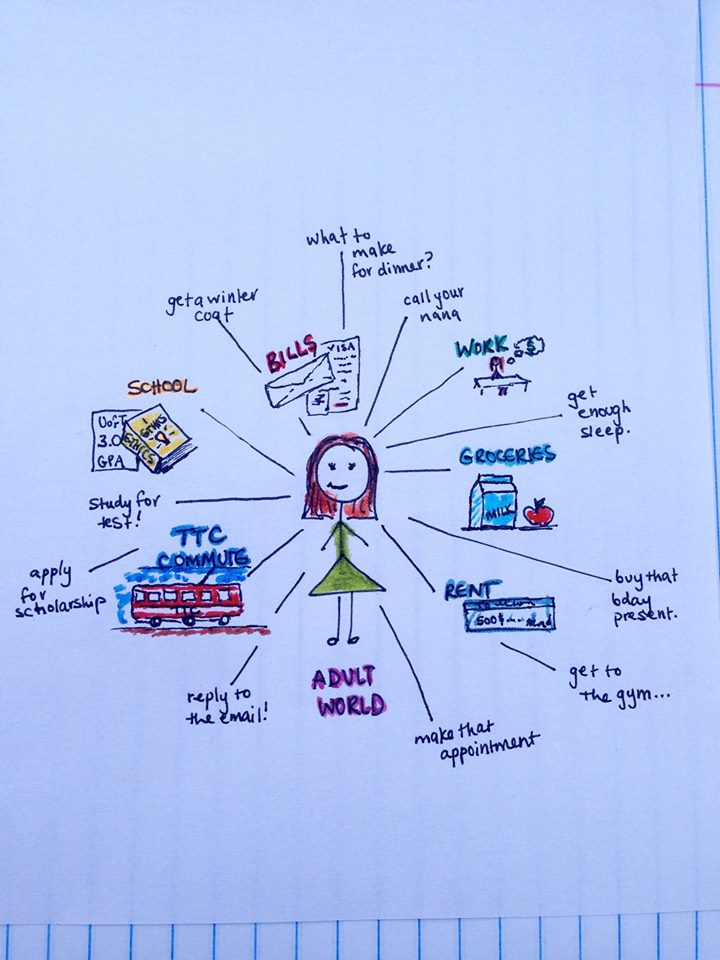 what to
make
for dinner?
get a winter
coat
call your
nana
BILLS
VISA
$
WORK
$
SCHOOL
UofT
3.0
GPA
ETHICS
ETHICS
get
enough
sleep.
GROCERIES
MILK
study for
test!
TTC
COMMUTE
TTC
apply
for
scholarship
RENT
500$
buy that
bday
present.
get to
the gym...
reply to
the email!
ADULT
WORLD
make that
appointment